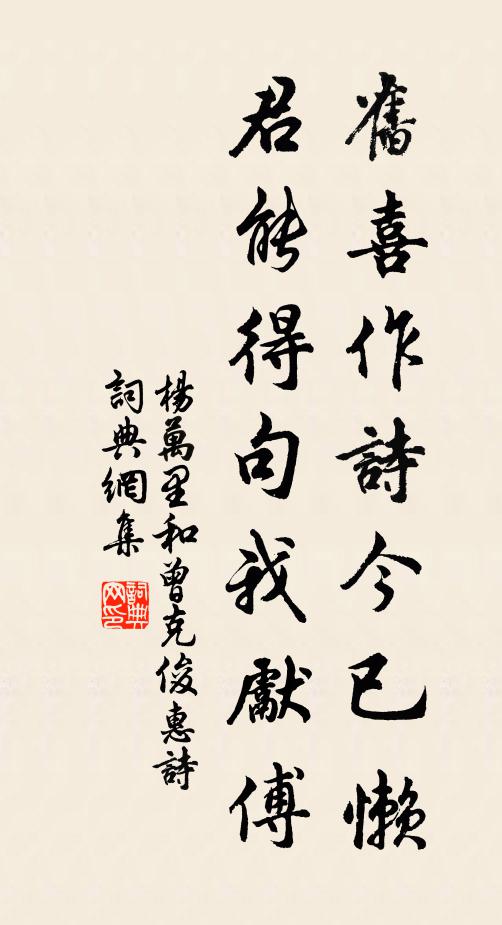 舊喜作詩今已懶
君能得句我獻傅
楊萬里和曾克俊惠詩
詞典網集
詞典網印